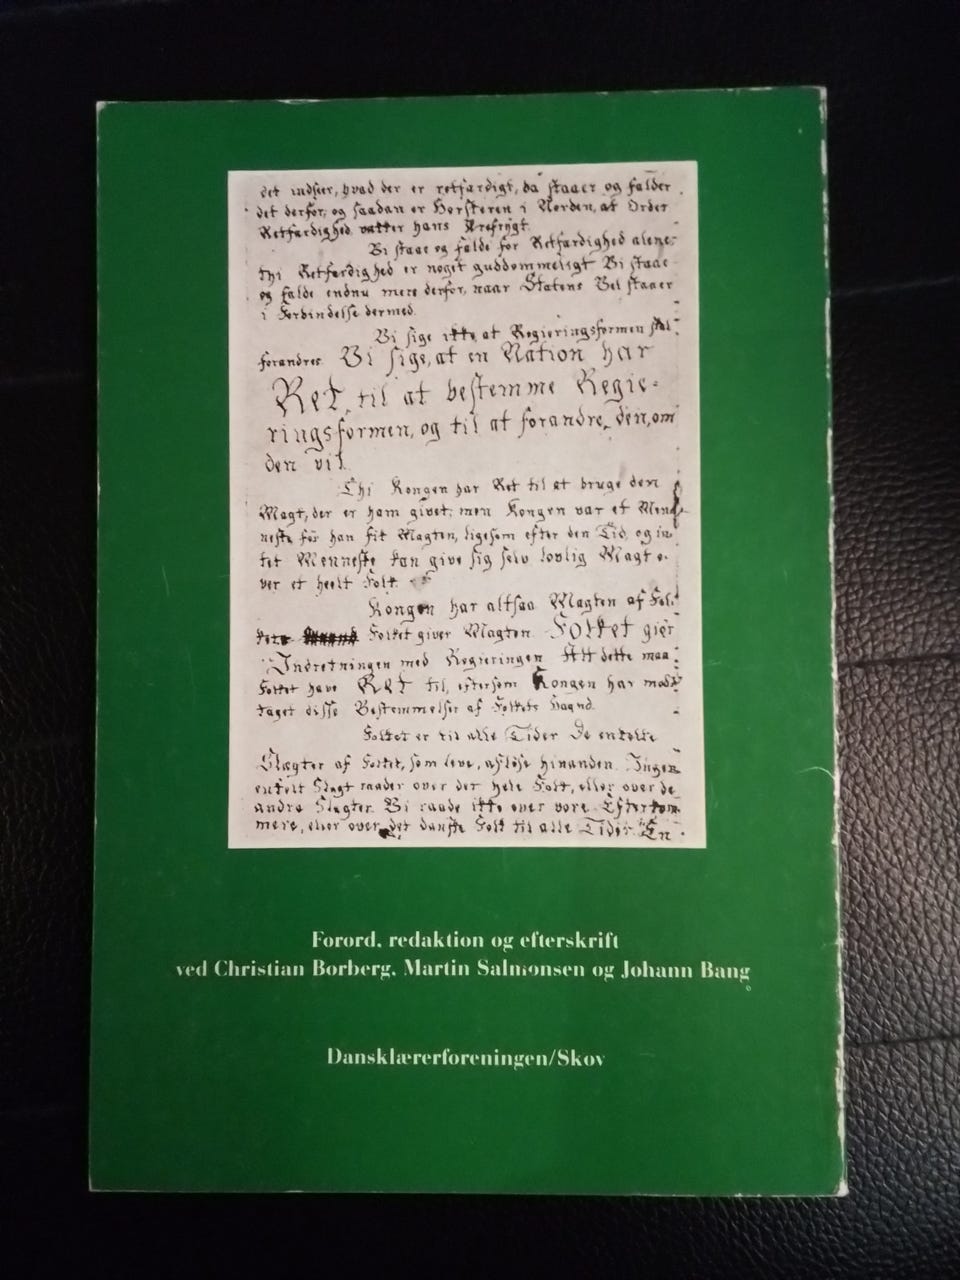 det indseer, hvad der er retfærdigt, da staaer og falder
det derfor, og saadan er Horsteren i Norden, at Order
Retfærdighed vætter hans Ærefrygt.
Vi staae og falde for Retfærdighed alene,
thi Retfærdighed er noget guddommeligt Vi staae
og falde endnu mere derfor, naar Statens Vel staaer
i Forbindelse dermed.
Vi sige ikke, at Regieringsformen skal
forandres Vi sige, at en Nation har
Ret, til at bestemme Regie-
ringsformen, og til at forandre den, om
den vil.
Thi Kongen har Ret til at bruge den
Magt, der er ham givet; men Kongen var et Men-
neske før han fik Magten, ligesom efter den Tid, og in-
tet Menneske kan give sig selv lovlig Magt o-
ver et heelt Folk.
Kongen har altsaa Magten af Fol-
ket Folket giver Magten. Folket giør
Indretningen med Regieringen Alt dette maa
Folket have Ret til, eftersom Kongen har mod-
taget disse Bestemmelser af Folkets Haand.
Folket er til alle Tider De enkelte
Slægter af Folket, som leve, afløse hinanden. Ingen
enkelt Slægt raader over det hele Folk, eller over de
andre Slægter. Vi raade ikke over vore Efterkom-
mere, eller over det danske Folk til alle Tider. En
Forord, redaktion og efterskrift
ved Christian Borberg, Martin Salmonsen og Johann Bang
Dansklærerforeningen/Skov